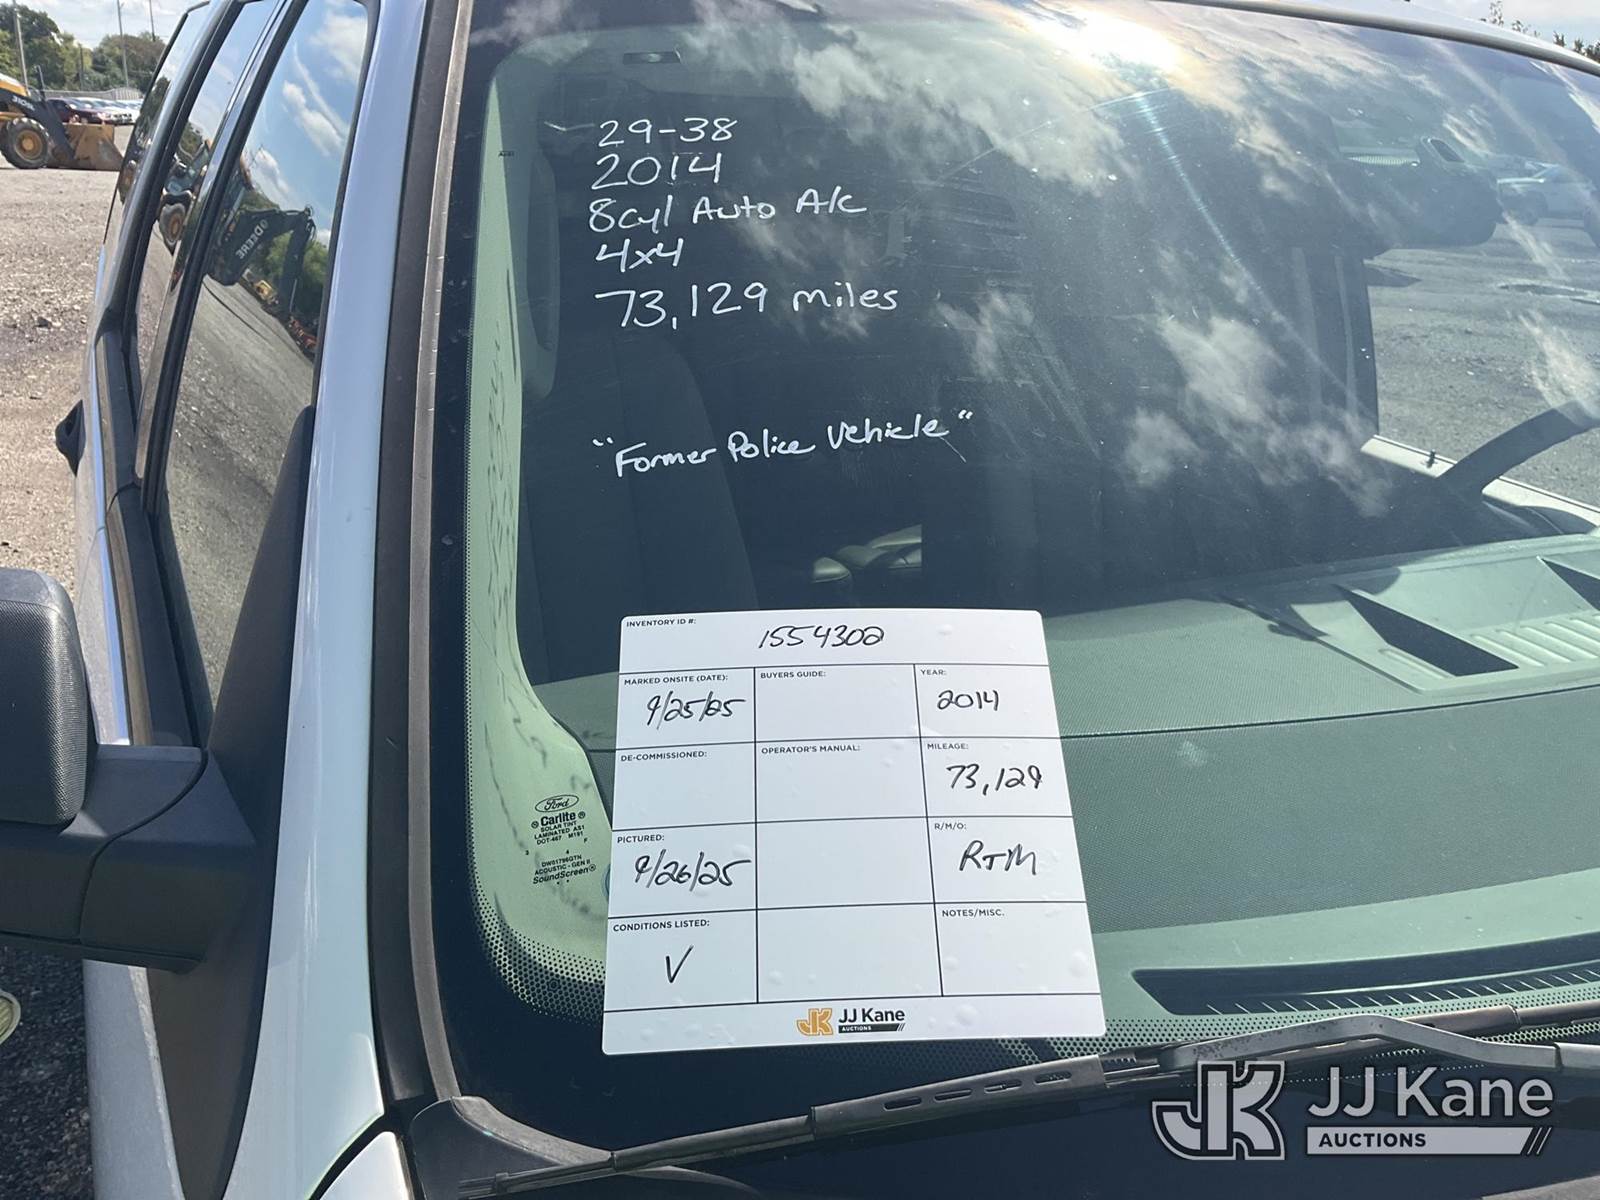 29-38
2014
8cyl Auto A/c
4x4
73,129 miles
"Former Police Vehicle"
INVENTORY ID #: 1554302
MARKED ONSITE (DATE): 9/25/25
BUYERS GUIDE:
YEAR: 2014
DE-COMMISSIONED:
OPERATOR'S MANUAL:
MILEAGE: 73,129
PICTURED: 9/26/25
R/M/O: RTM
CONDITIONS LISTED: V
NOTES/MISC.
JK JJ Kane
AUCTIONS
Ford
Carlite
SOLAR TINT
LAMINATED AS1
DOT-467 M191
DW01796GTN
ACOUSTIC - GEN II
SoundScreen®
DEERE
310SK
JK JJ Kane
AUCTIONS